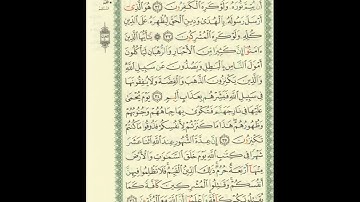 أَن يُتِمَّ نُورَهُۥ وَلَوْ كَرِهَ ٱلْكَـٰفِرُونَ ٣٢ هُوَ ٱلَّذِىٓ
أَرْسَلَ رَسُولَهُۥ بِٱلْهُدَىٰ وَدِينِ ٱلْحَقِّ لِيُظْهِرَهُۥ عَلَى ٱلدِّينِ
كُلِّهِۦ وَلَوْ كَرِهَ ٱلْمُشْرِكُونَ ٣٣ ۞ يَـٰٓأَيُّهَا ٱلَّذِينَ
ءَامَنُوٓا۟ إِنَّ كَثِيرًا مِّنَ ٱلْأَحْبَارِ وَٱلرُّهْبَانِ لَيَأْكُلُونَ
أَمْوَٰلَ ٱلنَّاسِ بِٱلْبَـٰطِلِ وَيَصُدُّونَ عَن سَبِيلِ ٱللَّهِ
وَٱلَّذِينَ يَكْنِزُونَ ٱلذَّهَبَ وَٱلْفِضَّةَ وَلَا يُنفِقُونَهَا
فِى سَبِيلِ ٱللَّهِ فَبَشِّرْهُم بِعَذَابٍ أَلِيمٍ ٣٤ يَوْمَ يُحْمَىٰ
عَلَيْهَا فِى نَارِ جَهَنَّمَ فَتُكْوَىٰ بِهَا جِبَاهُهُمْ وَجُنُوبُهُمْ
وَظُهُورُهُمْ هَـٰذَا مَا كَنَزْتُمْ لِأَنفُسِكُمْ فَذُوقُوا۟ مَا كُنتُمْ
تَكْنِزُونَ ٣٥ إِنَّ عِدَّةَ ٱلشُّهُورِ عِندَ ٱللَّهِ ٱثْنَا عَشَرَ
شَهْرًا فِى كِتَـٰبِ ٱللَّهِ يَوْمَ خَلَقَ ٱلسَّمَـٰوَٰتِ وَٱلْأَرْضَ
مِنْهَآ أَرْبَعَةٌ حُرُمٌ ذَٰلِكَ ٱلدِّينُ ٱلْقَيِّمُ فَلَا تَظْلِمُوا۟ فِيهِنَّ
أَنفُسَكُمْ وَقَـٰتِلُوا۟ ٱلْمُشْرِكِينَ كَآفَّةً كَمَا
يُقَـٰتِلُونَكُمْ كَآفَّةً وَٱعْلَمُوٓا۟ أَنَّ ٱللَّهَ مَعَ ٱلْمُتَّقِينَ ٣٦